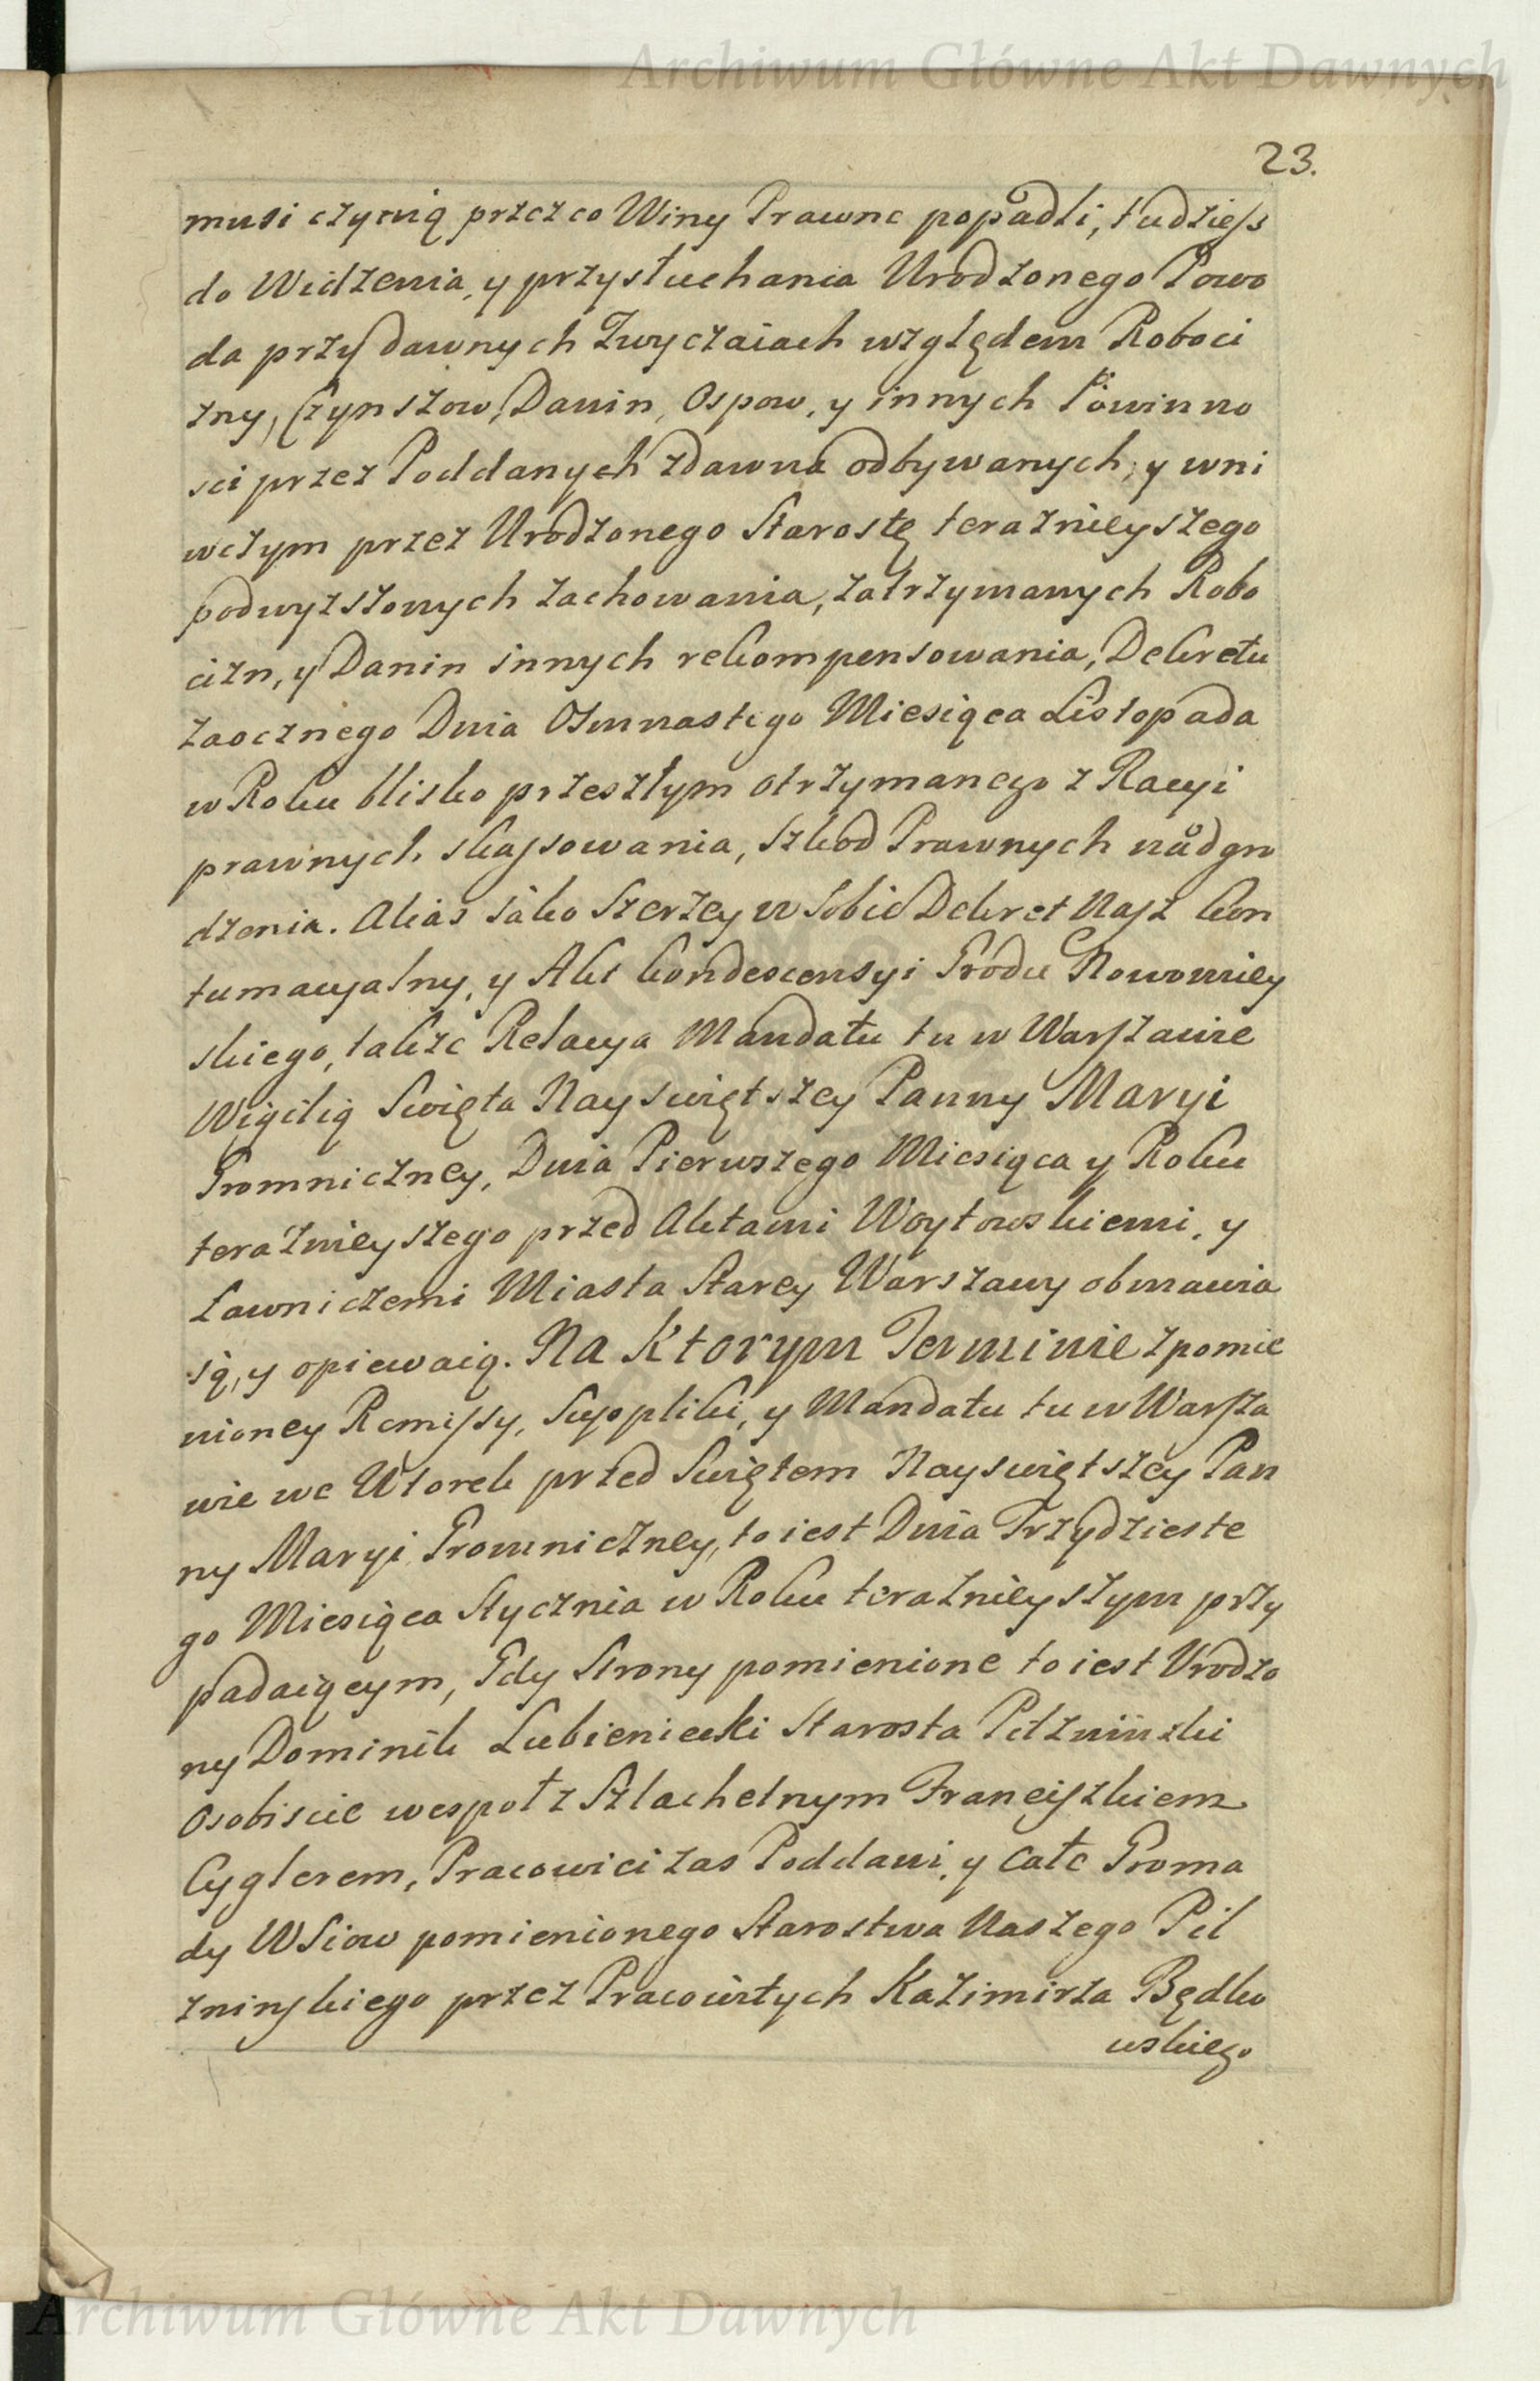 Archiwum Główne Akt Dawnych
23.
musi czynią przez co Winy Prawne popadli, tudziesz
do Widzenia, y przysłuchania Urodzonego Powo
da przy dawnych Zwyczaiach względem Roboci
zny, Czynszow, Danin, Ospow, y innych Powinno
sci przez Poddanych zdawna odbywanych, y wni
wczym przez Urodzonego Starostę teraznieyszego
podwyzszonych zachowania, zatrzymanych Robo
cizn, y Danin innych rekompensowania, Dekretu
zaocznego Dnia Osmnastego Miesiąca Listopada
w Roku blisko przeszłym otrzymanego z Racyi
prawnych skassowania, Szkod Prawnych nadgro
dzenia. Alias iako Szerzey w Sobie Dekret Nasz kon
tumacyalny, y Akt kondescensyi Grodu Nowomiey
skiego, takze Relacya Mandatu tu w Warszawie
Wigilią Swięta Nayswiętszey Panny Maryi
Gromniczney, Dnia Pierwszego Miesiąca y Roku
teraznieyszego przed Aktami Woytowskiemi, y
Ławniczemi Miasta Starey Warszawy obmawia
ią, y opiewaią. Na Ktorym Terminie z pomie
nioney Remissy, Suppliki, y Mandatu tu w Warsza
wie we Wtorek przed Swiętem Nayswiętszey Pan
ny Maryi Gromniczney, to iest Dnia Trzydzieste
go Miesiąca Stycznia w Roku teraznieyszym przy
padaiącym, Gdy Strony pomienione to iest Urodzo
ny Dominik Łubieniecki Starosta Pilzninski
Osobiscie wespoł z Szlachetnym Franciszkiem
Cyglerem, Pracowici zas Poddani, y całe Groma
dy WSiow pomienionego Starostwa Naszego Pil
zninskiego przez Pracowitych Kazimirza Będko
wskiego
Archiwum Główne Akt Dawnych